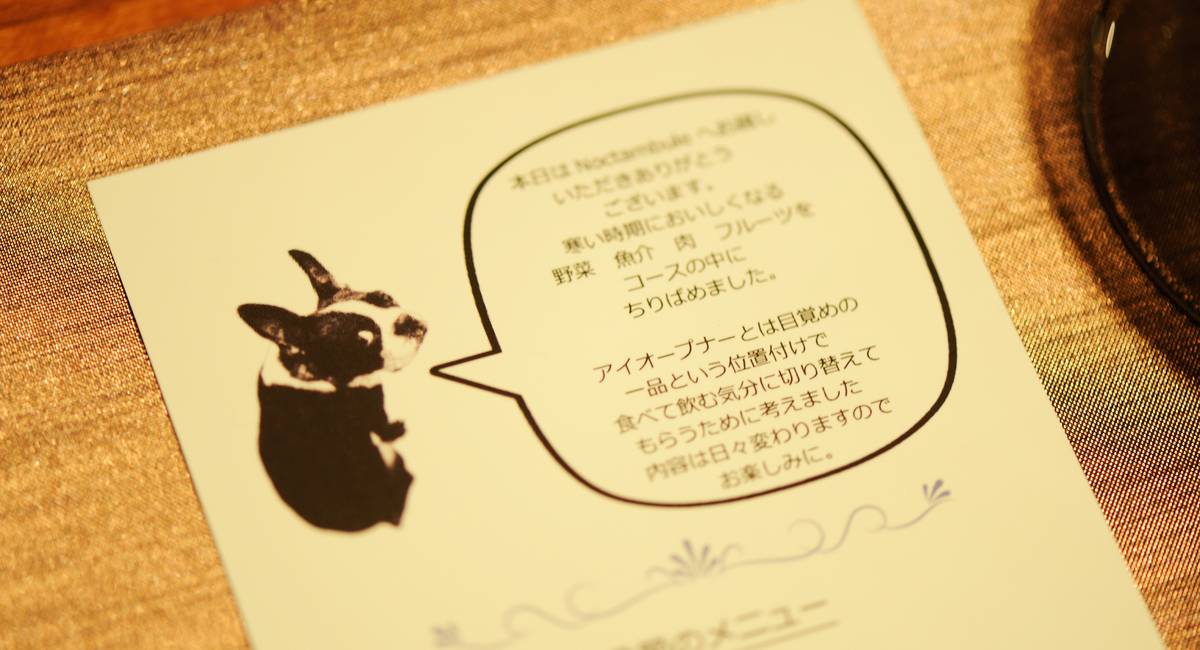 本日は Noctambule へお越し
いただきありがとう
ございます。
寒い時期においしくなる
野菜 魚介 肉 フルーツを
コースの中に
ちりばめました。
アイオープナーとは目覚めの
一品という位置付けで
食べて飲む気分に切り替えて
もらうために考えました
内容は日々変わりますので
お楽しみに。
のメニュー